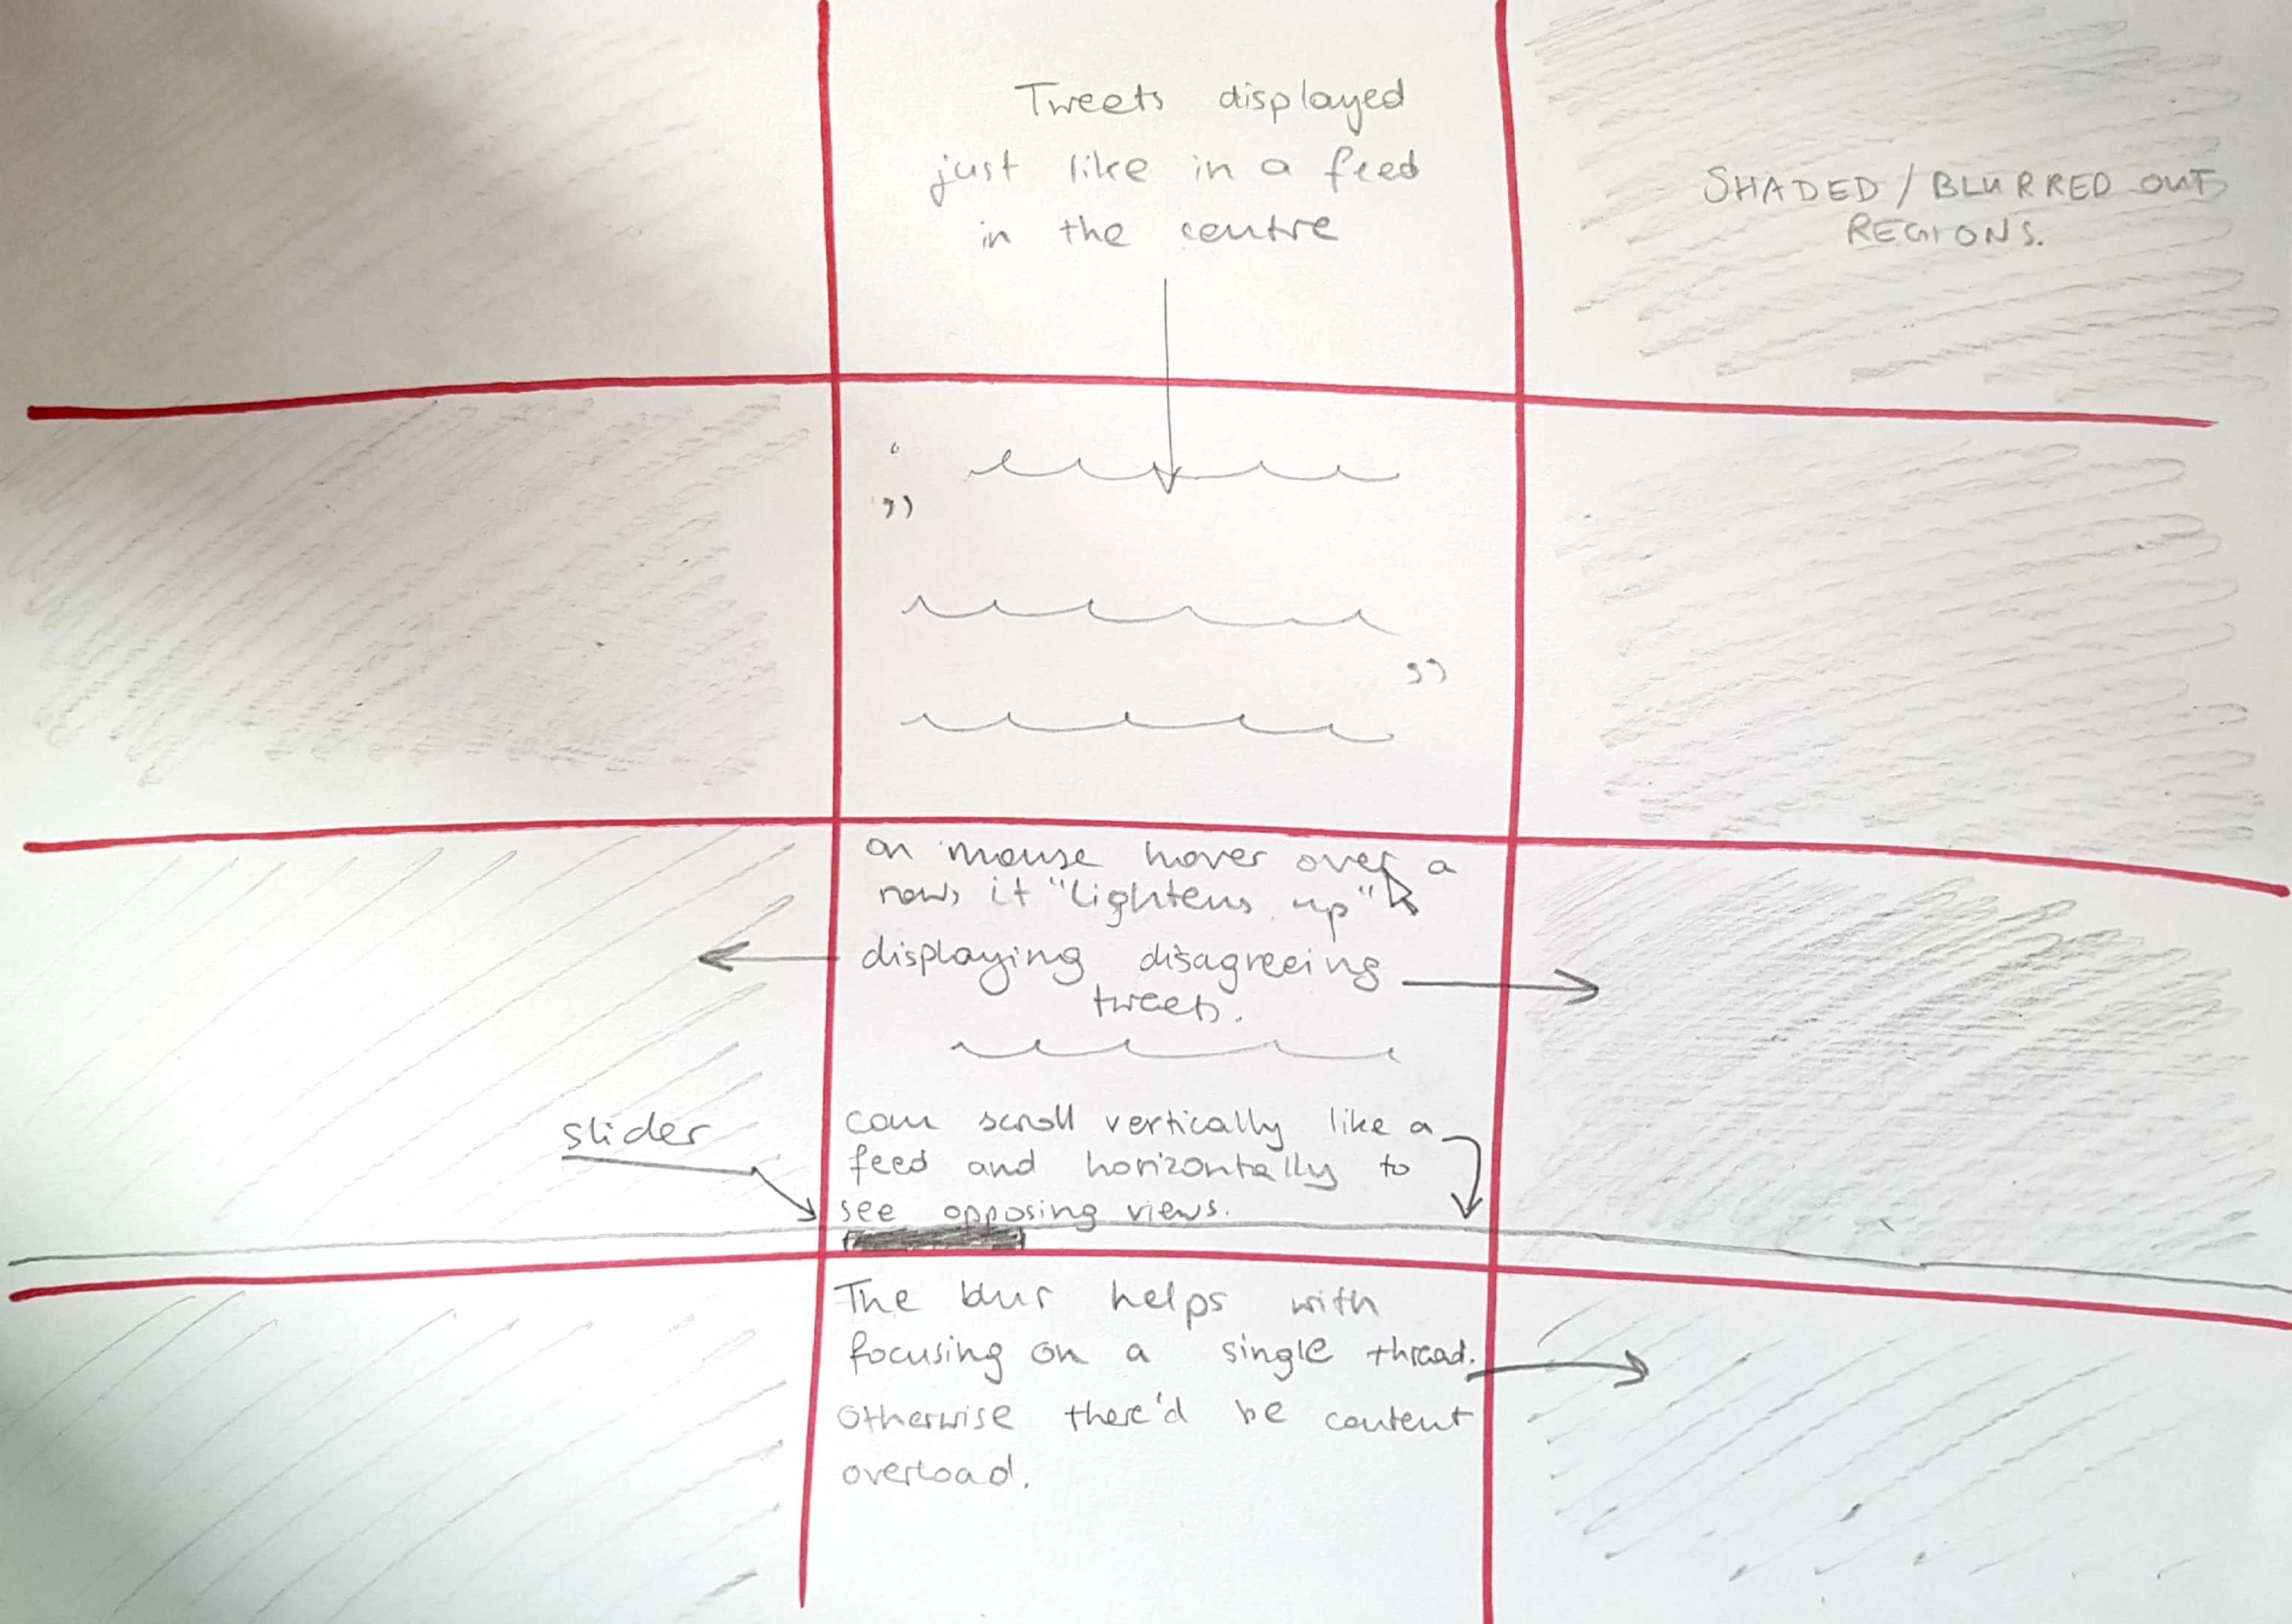 Tweets displayed
just like in a feed
in the centre
SHADED / BLURRED OUT
REGIONS.
on mouse hover over a
row, it "lightens up"
displaying disagreeing
tweets.
slider
can scroll vertically like a
feed and horizontally to
see opposing views.
The blur helps with
focusing on a single thread.
otherwise there'd be content
overload.